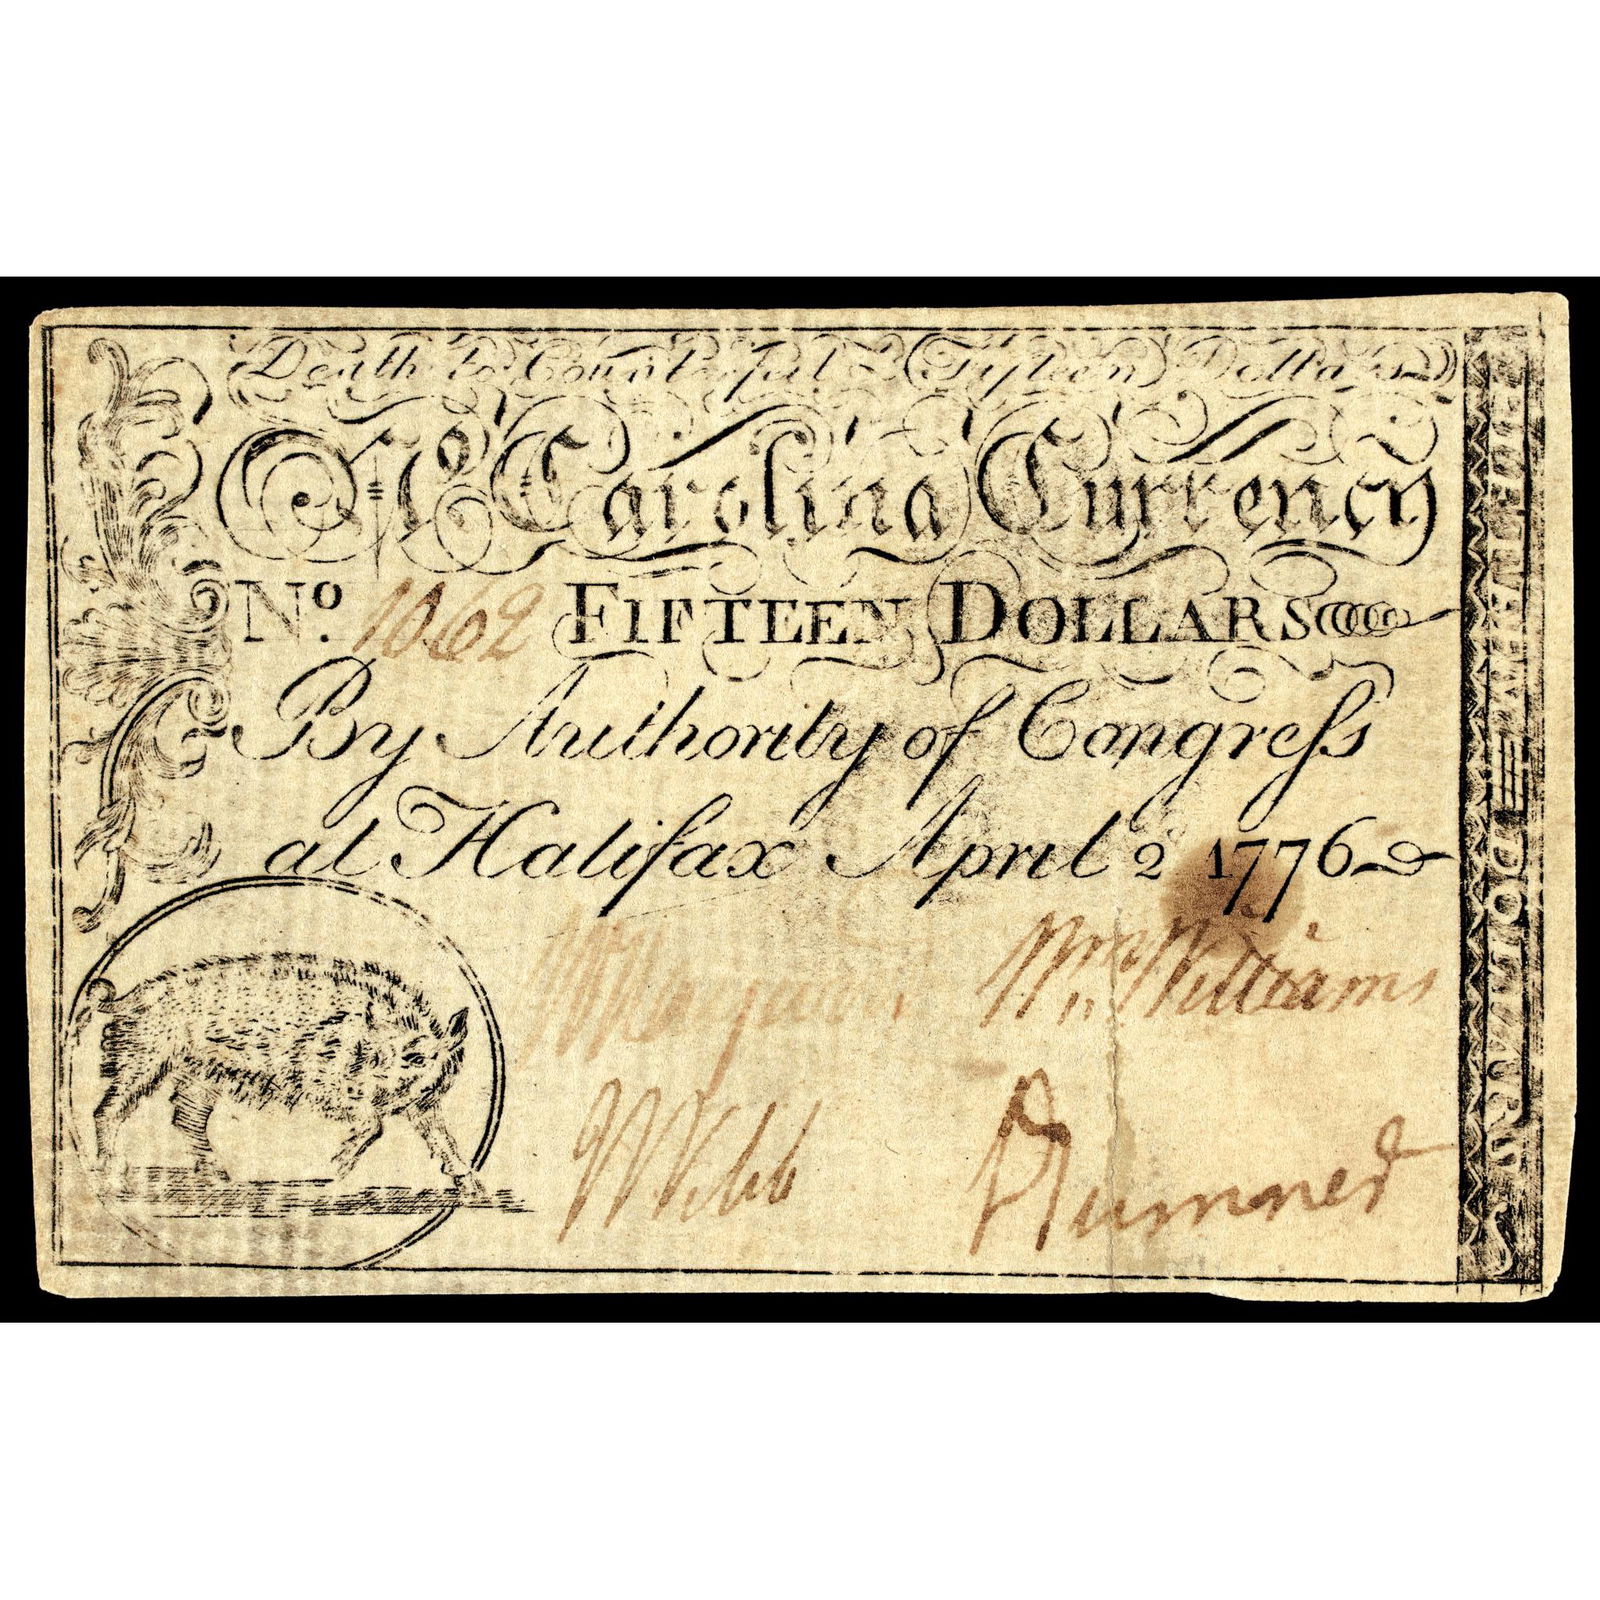 Death to Counterfeit Fifteen Dollars
No Carolina Currency
No. 1062 FIFTEEN DOLLARS
By Authority of Congress
at Halifax April 2 1776
Wm Williams
W Webb
Sumner
FIFTEEN DOLLARS